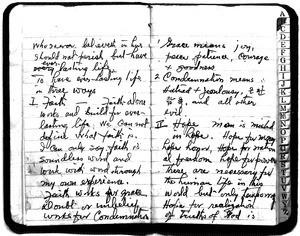 whosoever believeth in him
should not perish but have
ever lasting life
To have everlasting life
in three ways
I. Faith Faith alone
works and build for ever-
lasting life. We can not
define what faith is.
I can only say faith is
soundless wind and
work with wind through
my own experience.
Faith works for grace
doubt or unbelief
works for Condemnation
1 Grace means joy,
peace, patience, courage
& goodness
2 Condemnation means:
Hatred & jealousy,
and all other
evil.
II Hope man is made
Hope. Hope for man
hope for
freedom hope for power
these are necessary for
the human life in this
world but only
Hope for realization
of truth of God is
A
B
C
D
E
F
G
H
I
J
K
L
M
N
O
P
Q
R
S
T
U
V
W